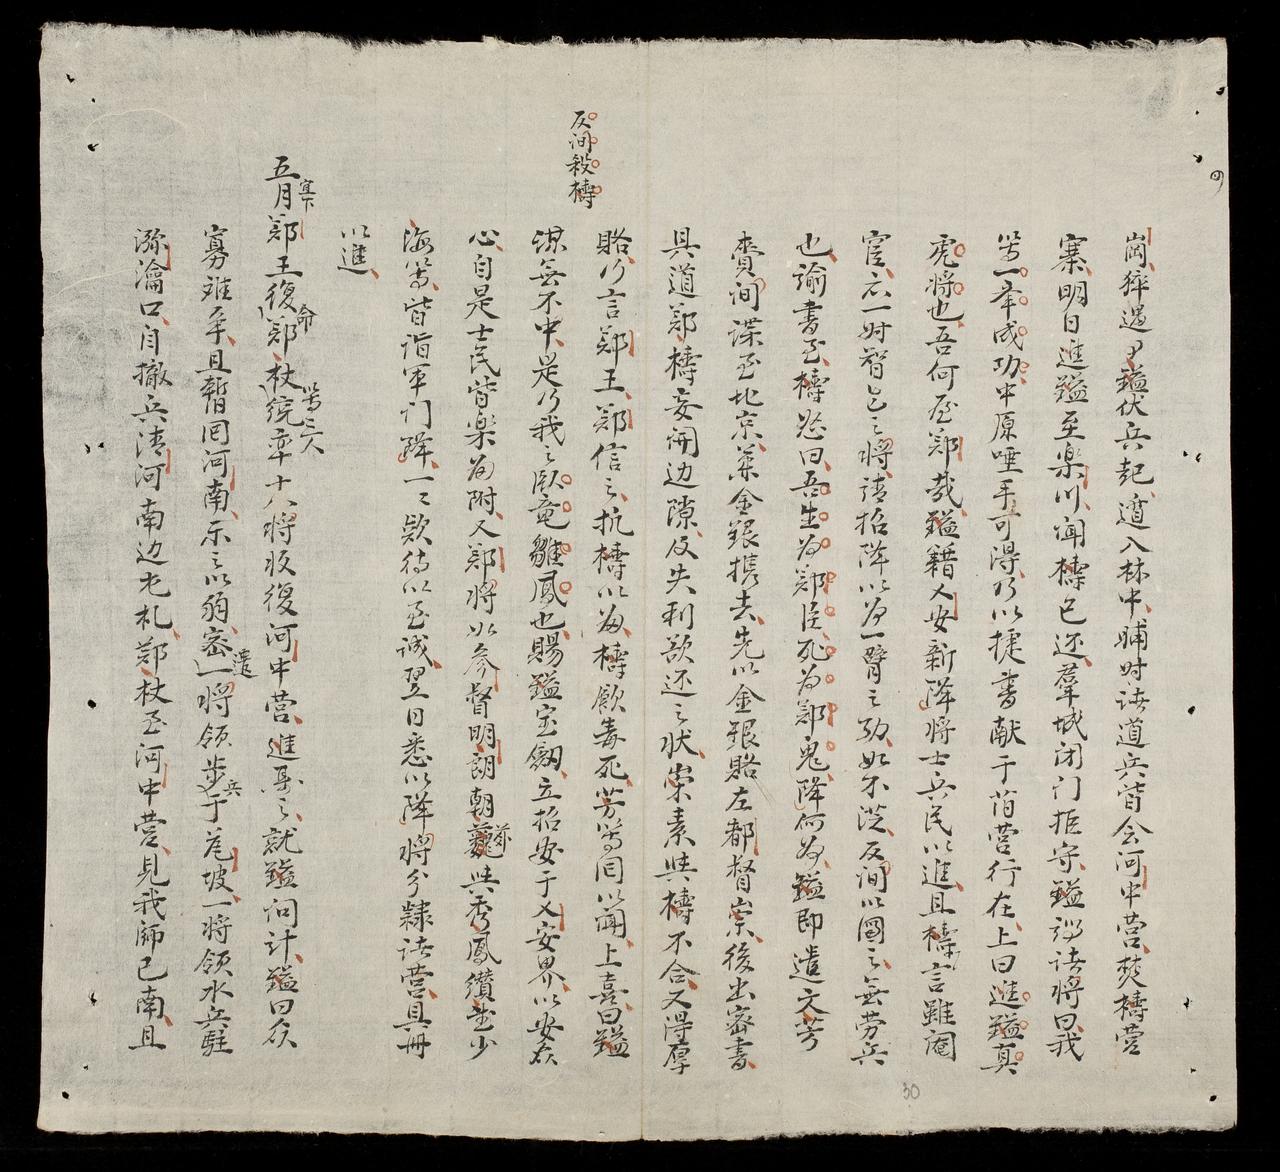 崗猝遇尹鎰伏兵起遁入林中晡时诸道兵皆会河中营焚檮营
寨明日進鎰至楽川闻檮已还羣城闭门拒守鎰謂诸将曰我
等一举成功中原唾手可得乃以捷書献于莆营行在上曰進鎰真
虎将也吾何屋鄚哉鎰籍乂安新降将士兵民以進且檮言雖閹
宦亦一时智色之将请招降以为一臂之助如不从反间以圖之無劳兵
也諭書至檮怒曰吾生为鄚臣死为鄚鬼降何为鎰即遣文芳
賫间諜至北京並金銀携去先以金銀賂左都督崇後出密書
具道鄚檮妄開边隙及失利欲还之状崇素與檮不合又得厚
賂乃言鄚王鄚信之抗檮以為檮飲毒死芳等囘以闻上喜曰鎰
謀無不中是乃我之卧竜雛鳳也賜鎰宝劔立招安于乂安界以安众
心自是士民皆楽为附又鄚将如参督明朗朝巍等與秀鳳纉武少
海等皆诣军门降一〻欵待以至诚翌日悉以降将分隸诸营具冊
以進
反间殺檮
五月寔下鄚王復命鄚杖統率等三人十八将收復河中营進聞之就鎰问计鎰曰众
寡难争且暫囘河南示之以弱密遣一将领步兵于芤坡一将领水兵駐
瀰瀹口自撤兵清河南边屯札鄚杖至河中营見我師已南且
30